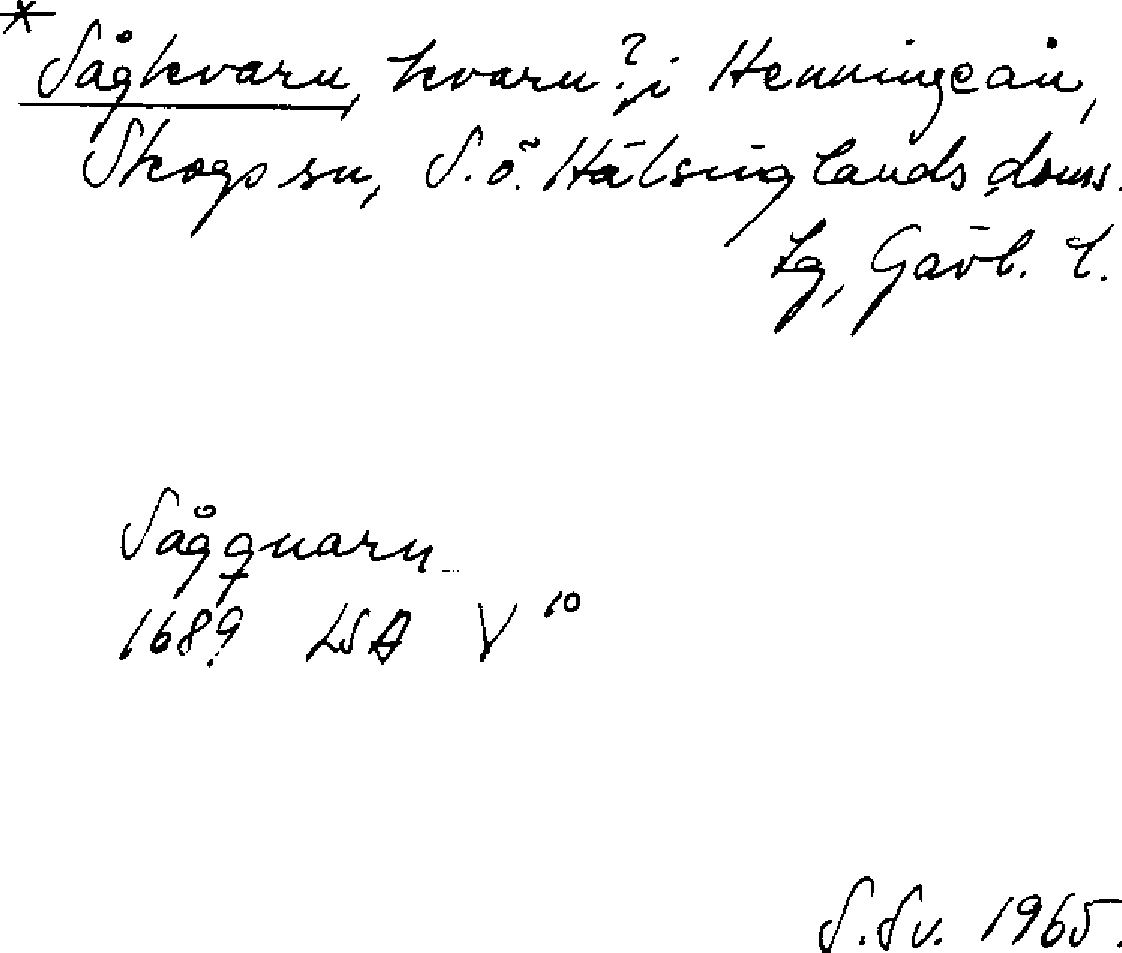 * Sågkvarn, kvarn? i Henningeån,
Skogs sn, S.ö. Hälsinglands doms.
Lg, Gävl. l.
Sågquarn
1689 LSA V 10
S.Sv. 1965.